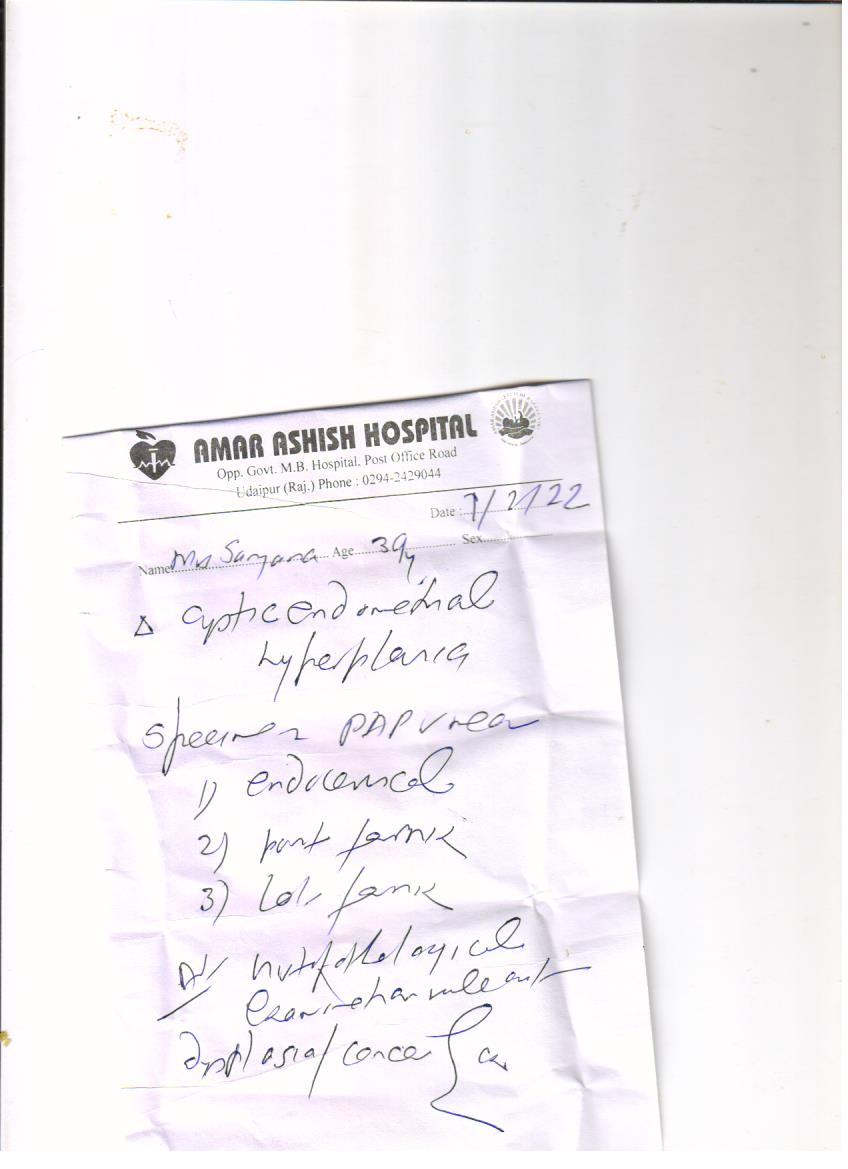 AMAR ASHISH HOSPITAL
Opp. Govt. M.B. Hospital. Post Office Road
Udaipur (Raj.) Phone : 0294-2429044
Date : 7/2/22
Name Mrs Sanjana Age 39y Sex
Δ Cystic endometrial
hyperplasia
Specimen PAP smear
1) endocervical
2) post fornix
3) lat fornix
Adv histopathological
Examination rule out
dysplasia/cancer